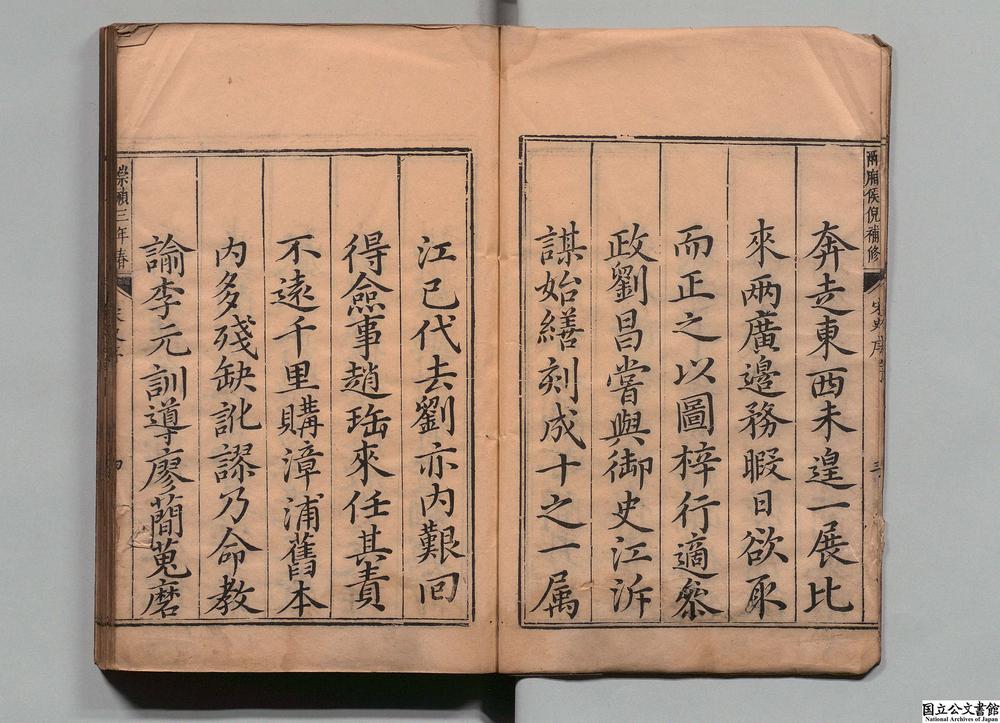 兩廂侯倪補修
宋史序
三
奔走東西未遑一展比
來兩廣邊務暇日欲取
而正之以圖梓行適叅
政劉昌嘗與御史江泝
謀始繕刻成十之一属
江已代去劉亦内艱回
得僉事趙珤來任其責
不遠千里購漳浦舊本
内多殘缺訛謬乃命教
諭李元訓導廖蕳蒐磨
崇禎三年春
四
国立公文書館
National Archives of Japan